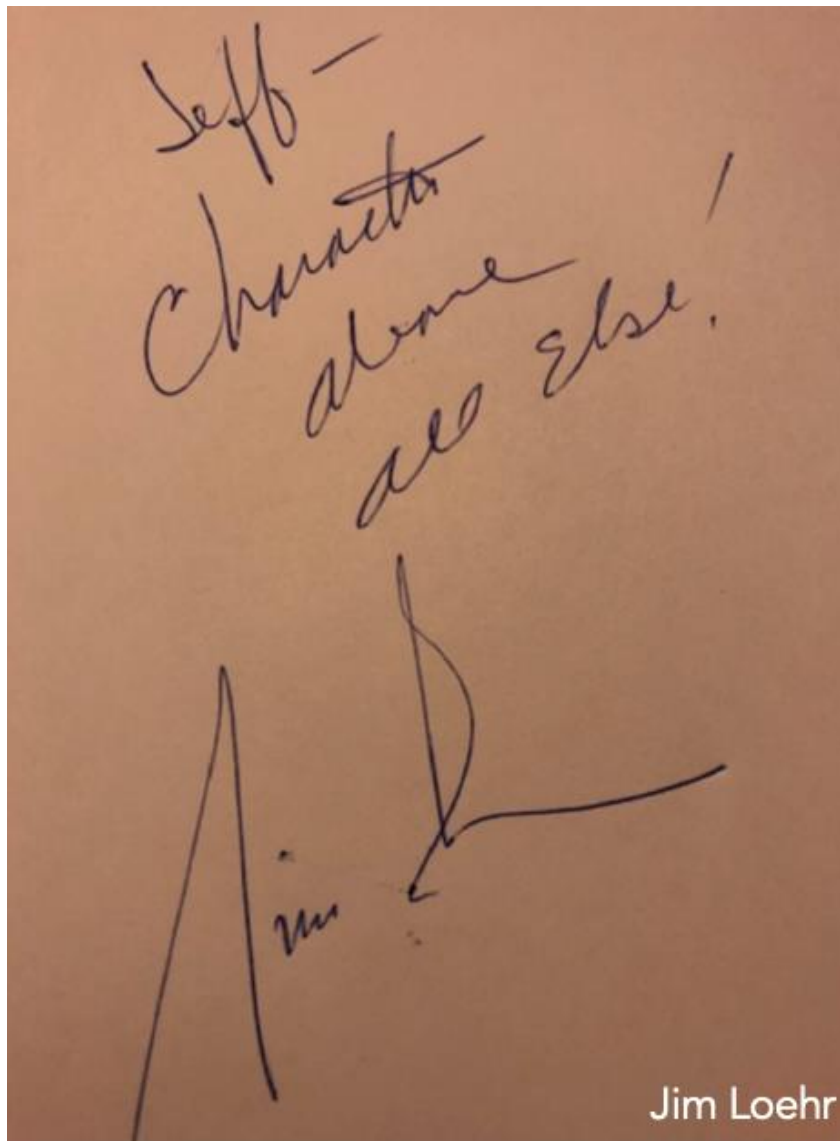 Jeff -
Character
above
all Else!
Jim
Jim Loehr